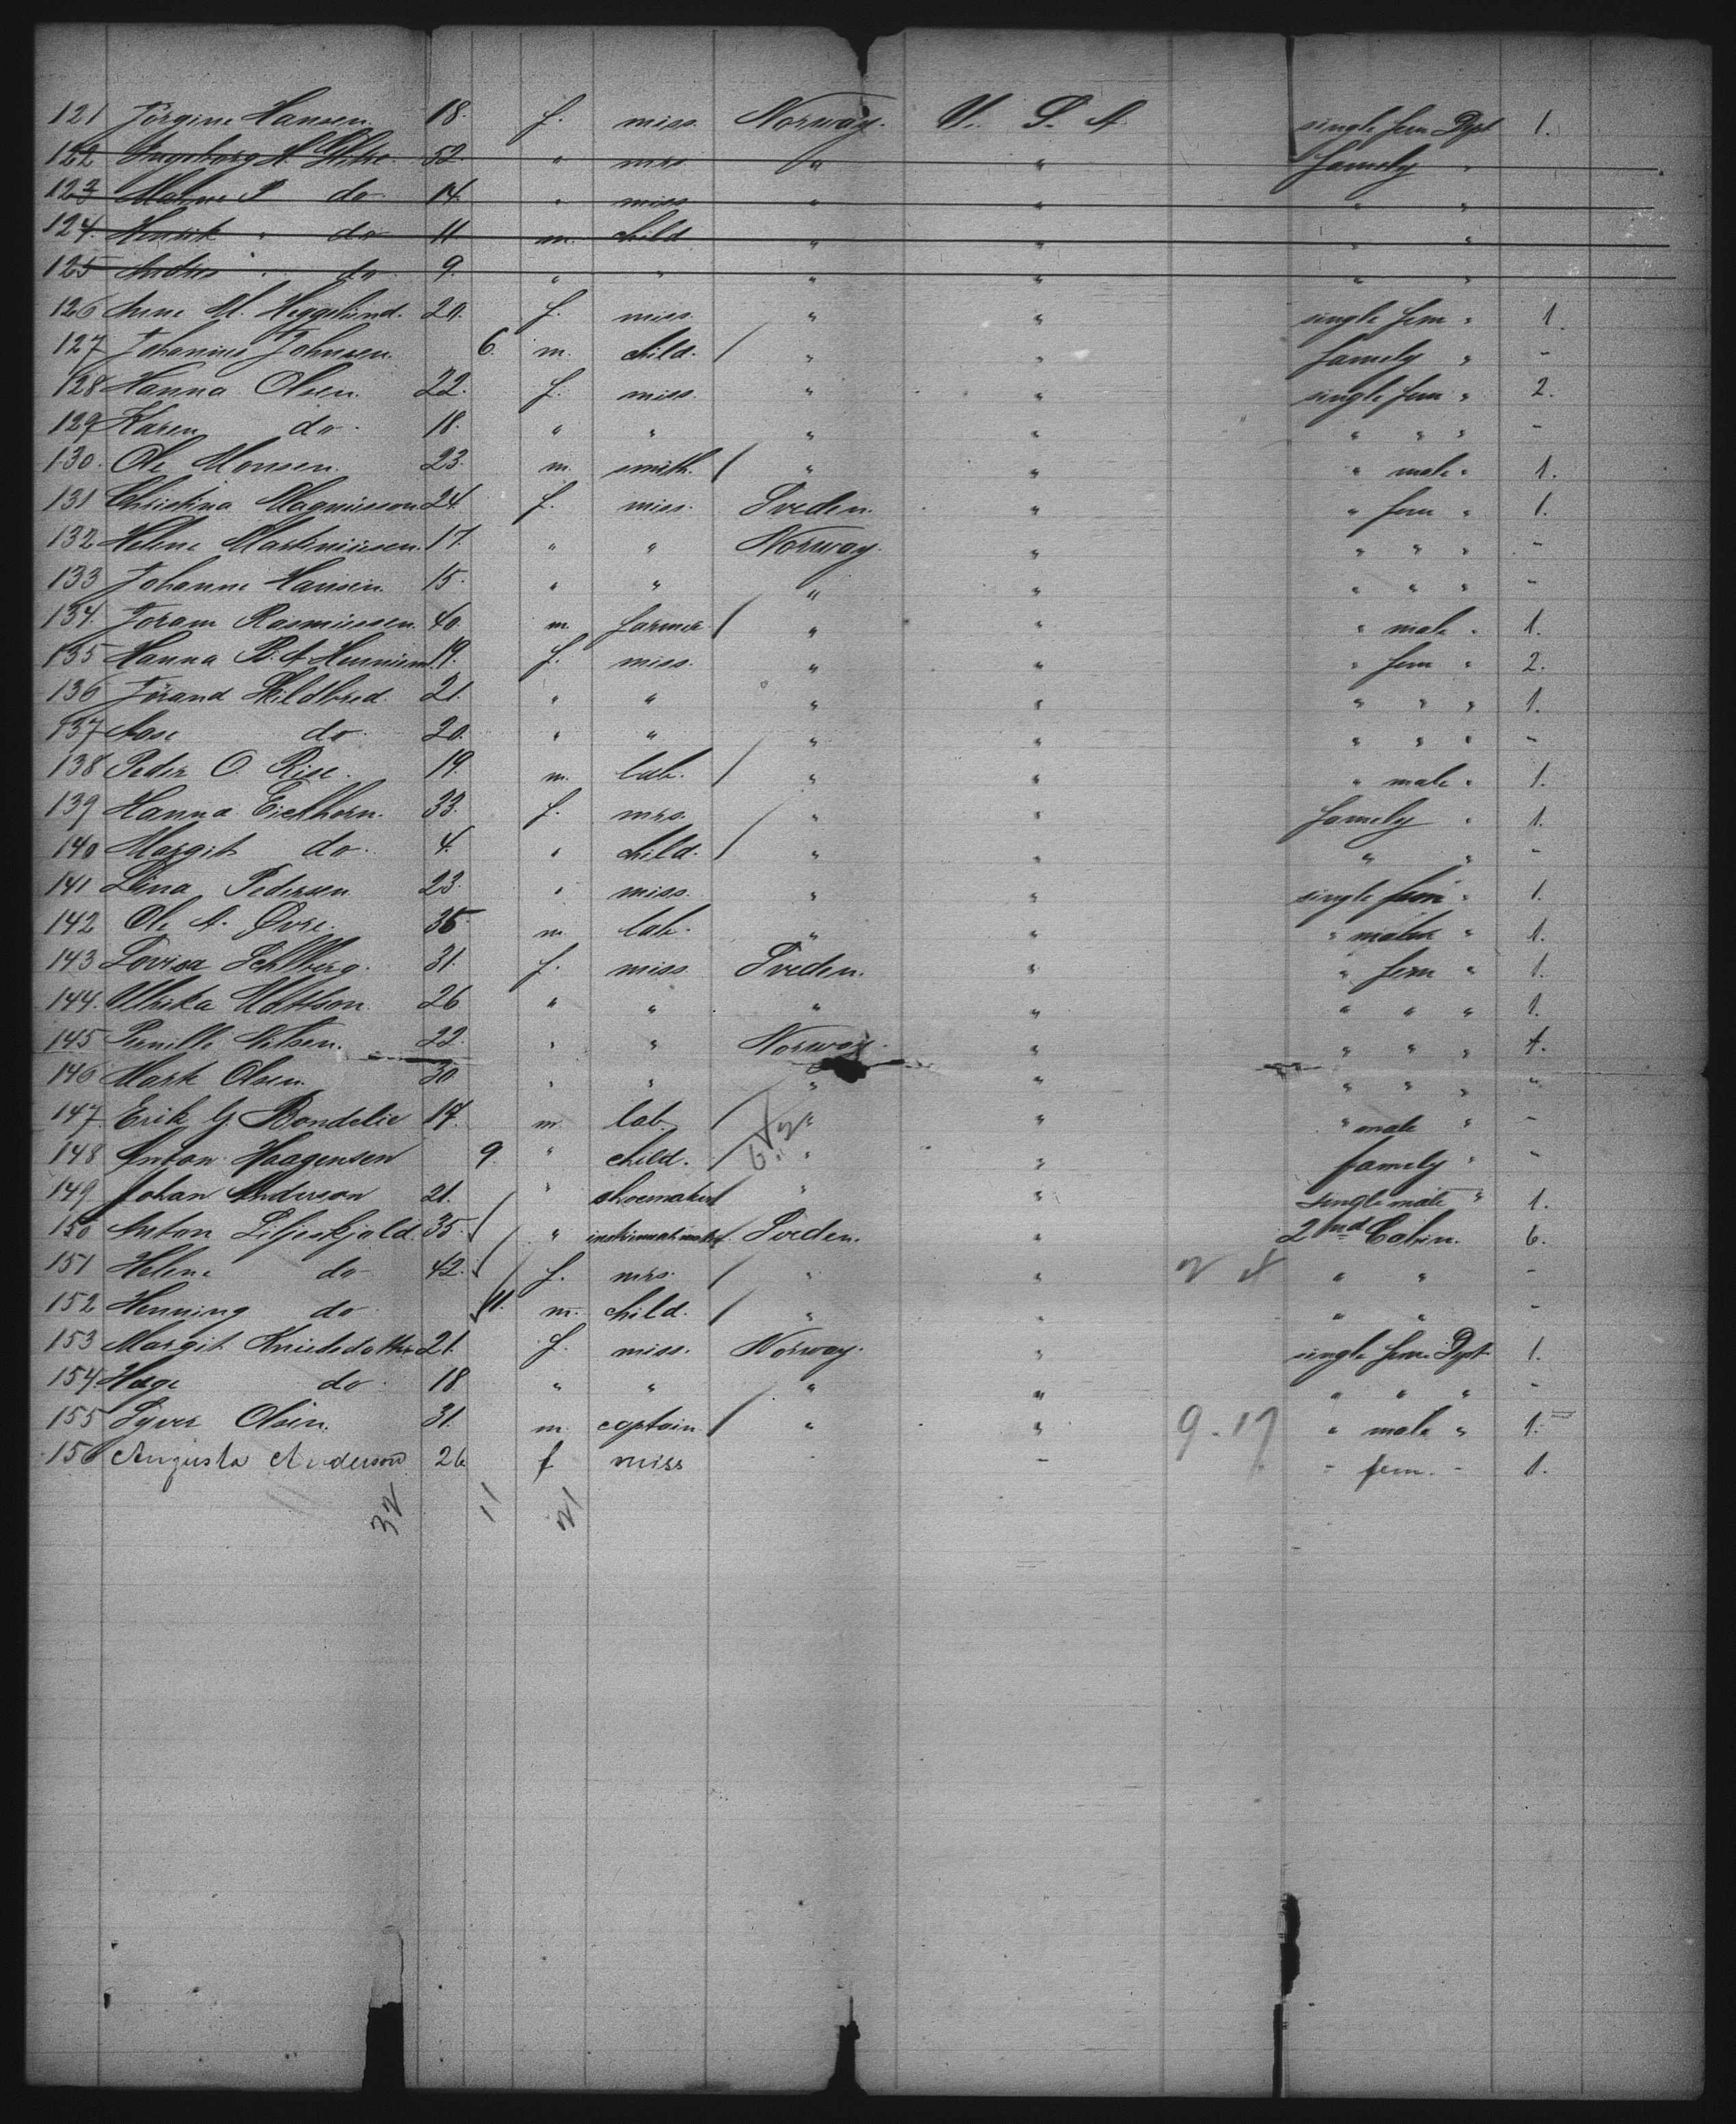 121 Jörgine Hansen. 18. f. miss. Norway. U. S. A single fem Dpt 1.
122 Ingeborg H. 52. " mrs. " " famely "
123 P do 14. " miss " " " "
124. Henrik " do 11 m. child " " " "
125 " do 9. " " " " " "
126 Anne M. Heggelund. 20. f. miss. " " single fem " 1.
127 Johannes Johnsen. 6. m. child. / " " famely " -
128 Hanna Olsen. 22. f. miss. " " single fem " 2.
129 Karen do. 18. " " " " " " " -
130. Ole Monsen. 23. m. smith. / " " " male " 1.
131 Christina Magnusson 24. f. miss. Sveden. " " fem " 1.
132 Helene Martiniusen. 17. " " Norway. " " " " -
133 Johanne Hansen. 15. " " " " " " " -
134. Joram Rasmussen. 40. m. farmer / " " " male " 1.
135 Hanna B. A. 19. f. miss. " " " fem " 2.
136 Jörand Skildbred. 21. " " " " " " " 1.
137 Aase do. 20. " " " " " " " -
138 Peder O. Rise. 19. m. lab. / " " " male " 1.
139 Hanna Eichhorn. 33. f. mrs. " " famely " 1.
140 Margit do. 4. " child. / " " " " -
141 Lina Pedersen 23. " miss. " " single fem " 1.
142 Ole A. Øvre. 35. m. lab. " " " male " 1.
143 Lovisa Sehlberg. 31. f. miss Sveden. " " fem " 1.
144. Ulrika Mattson. 26 " " " " " " " 1.
145 Pernille Nilsen. 22. " " Norway. " " " " 1.
146 Olsen. 30. " " " " " " " "
147. Erik G. Bondelie 17. m. lab. / " " " male " -
148 Anton Haagensen 9. " child. / " " famely " -
149 Johan Anderson 21. " shoemaker / " " single male " 1.
150 Anton Liljeskjold. 35. " Sveden. " 2nd Cabin. 6.
151 Helene do 42. f. mrs. / " " " " -
152 Henning do 11. m. child. / " " " " -
153 Margit Knudsdotter 21. f. miss. Norway. " single fem. Dpt. 1.
154. Hege do. 18 " " " " " " " -
155 Syver Olsen. 31. m. captain / " " 9-17 " male " 1.
156 Augusta Anderson 26 f miss - - - fem. - 1.
32 11 21